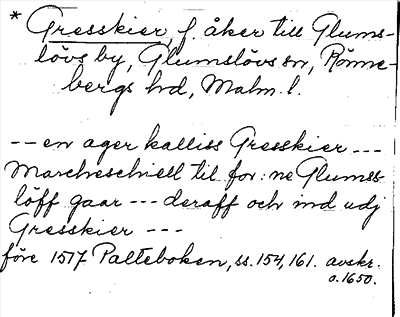 * Gresskier, f. åker till Glums-
lövs by, Glumslövs sn, Rönne-
bergs hd, Malm. l.
-- en ager kalliss Gresskier ---
Marcheschiell til for: ne Glumss
löff gaar --- deraff och ind udj
Gresskier ---
före 1517 Palteboken, ss. 154, 161. avskr.
o. 1650.